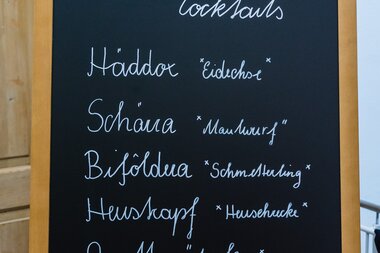 Cocktails
Häddox "Eidechse"
Schäua "Maulwurf"
Bifôldua "Schmetterling"
Heuskapf "Heuschrecke"